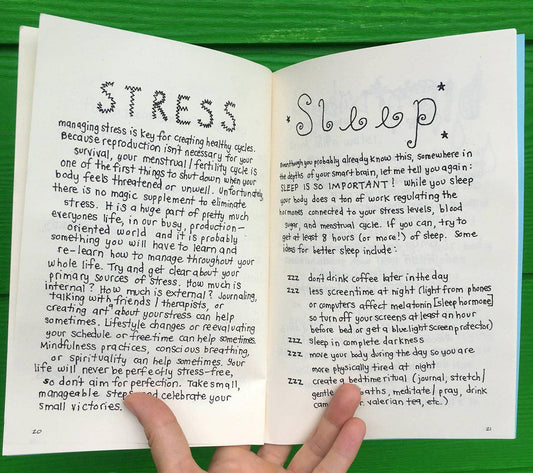 STRESS
managing stress is key for creating healthy cycles.
Because reproduction isn't necessary for your
survival, your menstrual/fertility cycle is
one of the first things to shut down when your
body feels threatened or unwell. Unfortunately
there is no magic supplement to eliminate
stress. It is a huge part of pretty much
everyones life, in our busy, production-
oriented world and it is probably
something you will have to learn and
re-learn how to manage throughout your
whole life. Try and get clear about your
primary sources of stress. How much is
internal? How much is external? Journaling,
talking with friends/therapists, or
creating art about your stress can help
sometimes. Lifestyle changes or reevaluating
your schedule or free time can help sometimes.
Mindfulness practices, conscious breathing,
or spirituality can help sometimes. Your
life will never be perfectly stress-free,
so don't aim for perfection. Take small,
manageable steps and celebrate your
small victories.
20
Sleep
Even though you probably already know this, somewhere in
the depths of your smart brain, let me tell you again:
SLEEP IS SO IMPORTANT! While you sleep
your body does a ton of work regulating the
hormones connected to your stress levels, blood
sugar, and menstrual cycle. If you can, try to
get at least 8 hours (or more!) of sleep. Some
ideas for better sleep include:
zzz don't drink coffee later in the day
zzz less screentime at night (light from phones
or computers affect melatonin [sleep hormone]
so turn off your screens at least an hour
before bed or get a blue light screen protector)
zzz sleep in complete darkness
zzz move your body during the day so you are
more physically tired at night
zzz create a bedtime ritual (journal, stretch/
gentle baths, meditate/pray, drink
valerian tea, etc.)
21